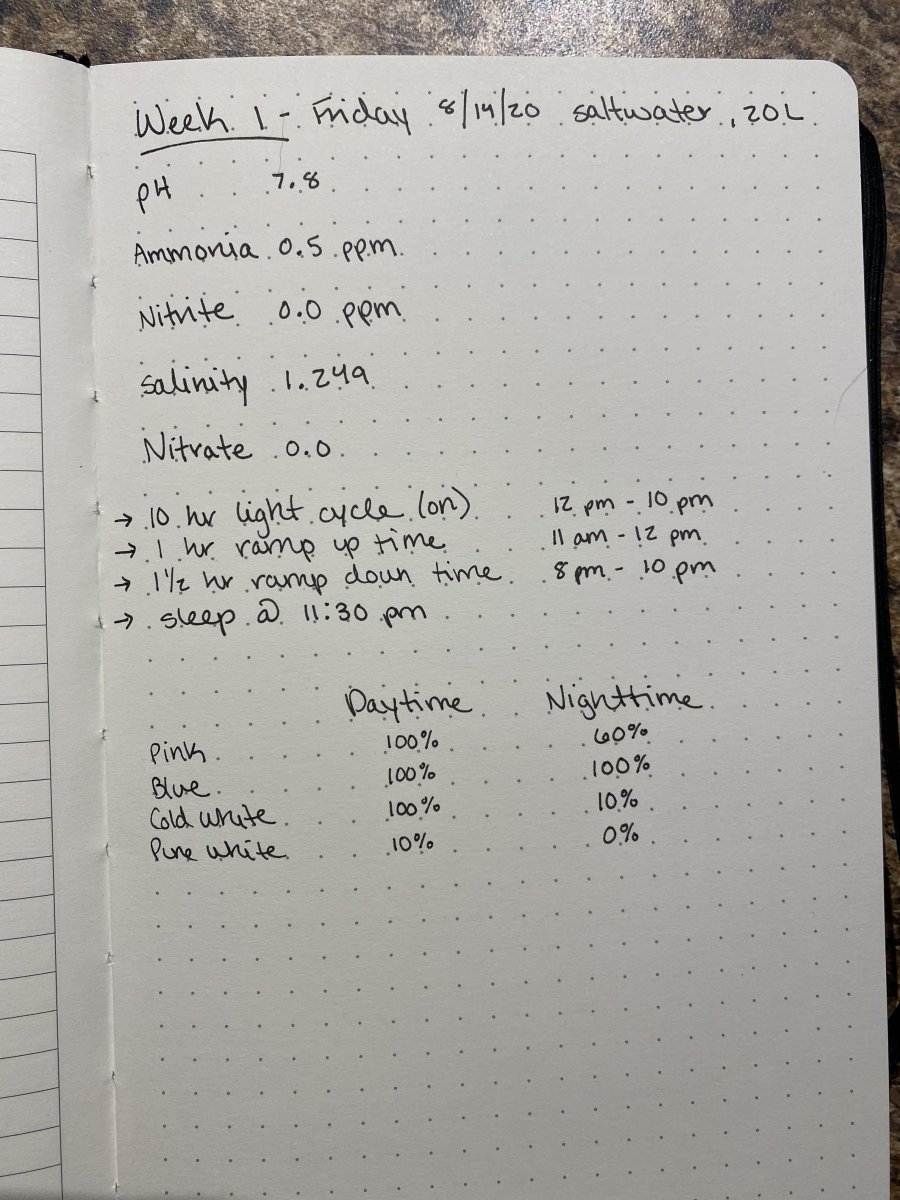 Week 1 - Friday 8/14/20 saltwater, 20L
pH 7.8
Ammonia 0.5 ppm
Nitrite 0.0 ppm
salinity 1.249
Nitrate 0.0
→ 10 hr light cycle (on) 12 pm - 10 pm
→ 1 hr ramp up time 11 am - 12 pm
→ 1 1/2 hr ramp down time 8 pm - 10 pm
→ sleep @ 11:30 pm
Daytime Nighttime
Pink 100% 60%
Blue 100% 100%
Cold white 100% 10%
Pure white 10% 0%